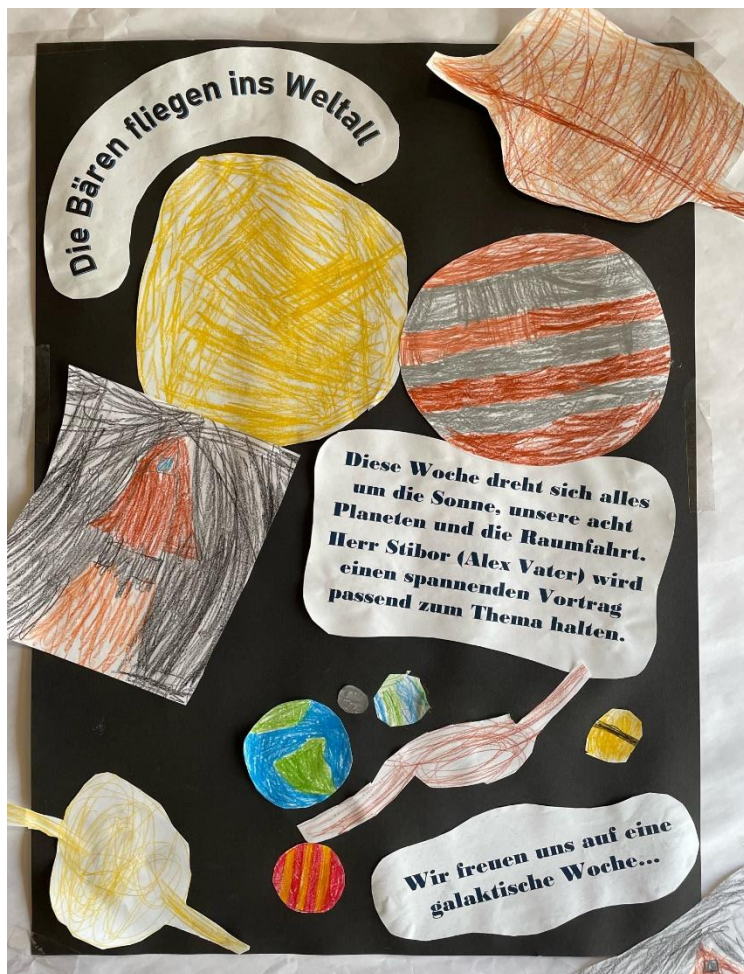 Die Bären fliegen ins Weltall
Diese Woche dreht sich alles
um die Sonne, unsere acht
Planeten und die Raumfahrt.
Herr Stibor (Alex Vater) wird
einen spannenden Vortrag
passend zum Thema halten.
Wir freuen uns auf eine
galaktische Woche...